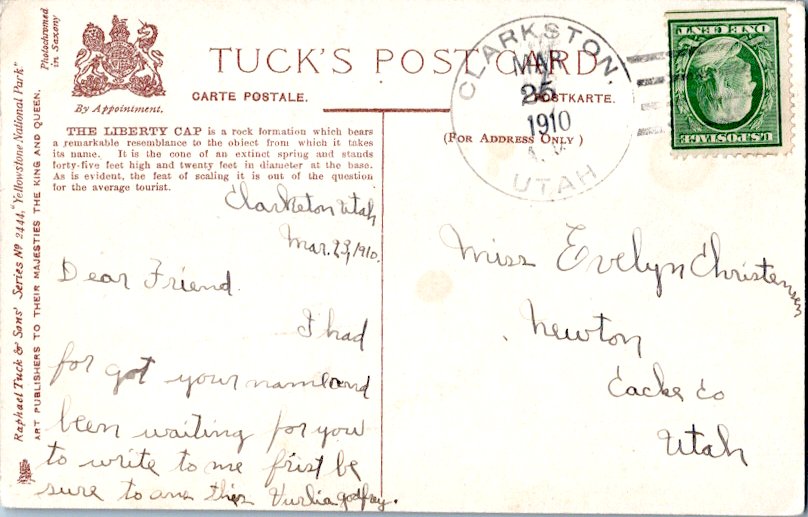 Photochromed
in Saxony
By Appointment.
TUCK'S POST CARD.
CARTE POSTALE.
POSTKARTE.
(FOR ADDRESS ONLY)
CLARKSTON
MAR
25
1910
UTAH
U.S. POSTAGE
ONE CENT
THE LIBERTY CAP is a rock formation which bears
a remarkable resemblance to the object from which it takes
its name. It is the cone of an extinct spring and stands
forty-five feet high and twenty feet in diameter at the base.
As is evident, the feat of scaling it is out of the question
for the average tourist.
Raphael Tuck & Sons' Series Nº 2444, "Yellowstone National Park"
ART PUBLISHERS TO THEIR MAJESTIES THE KING AND QUEEN.
Clarkston Utah
Mar. 23, 1910.
Dear Friend.
I had
for got your name and
been waiting for you
to write to me frist be
sure to ans this godfray.
Miss Evelyn Christensen
Newton
Cache Co
Utah